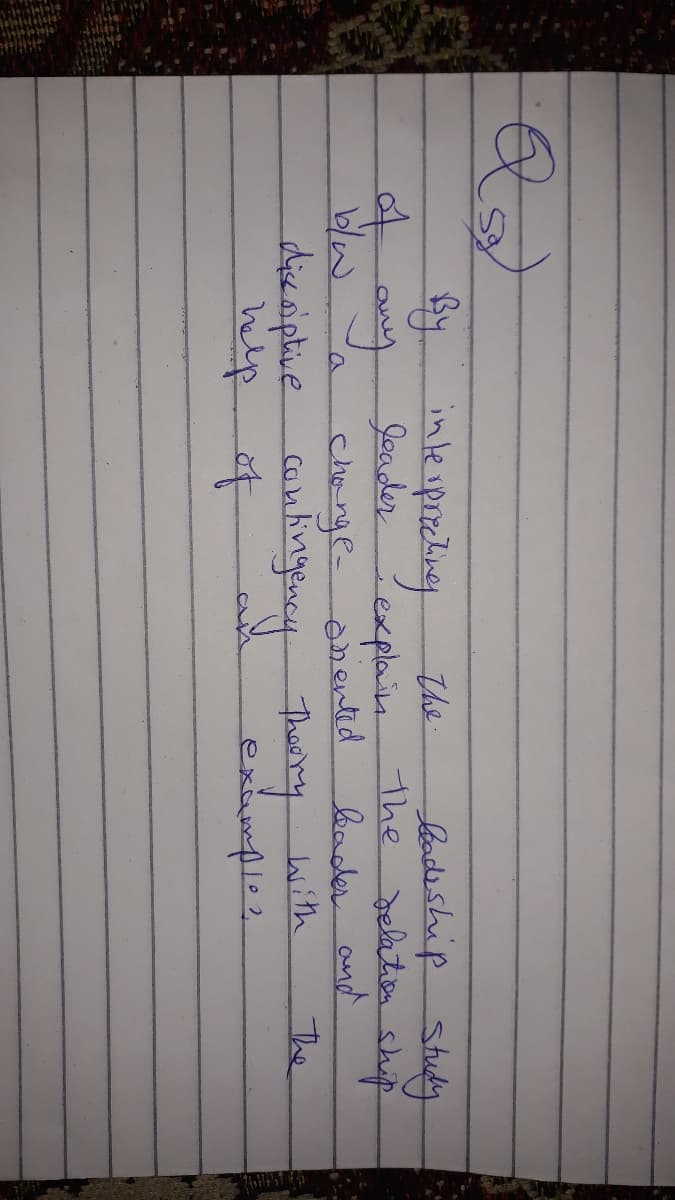 Q 5g)
By interpreting the leadeship study
of any leader, explain the relation ship
b/w a change-oriented leader and
discriptive contingency theory with the
help of an example?